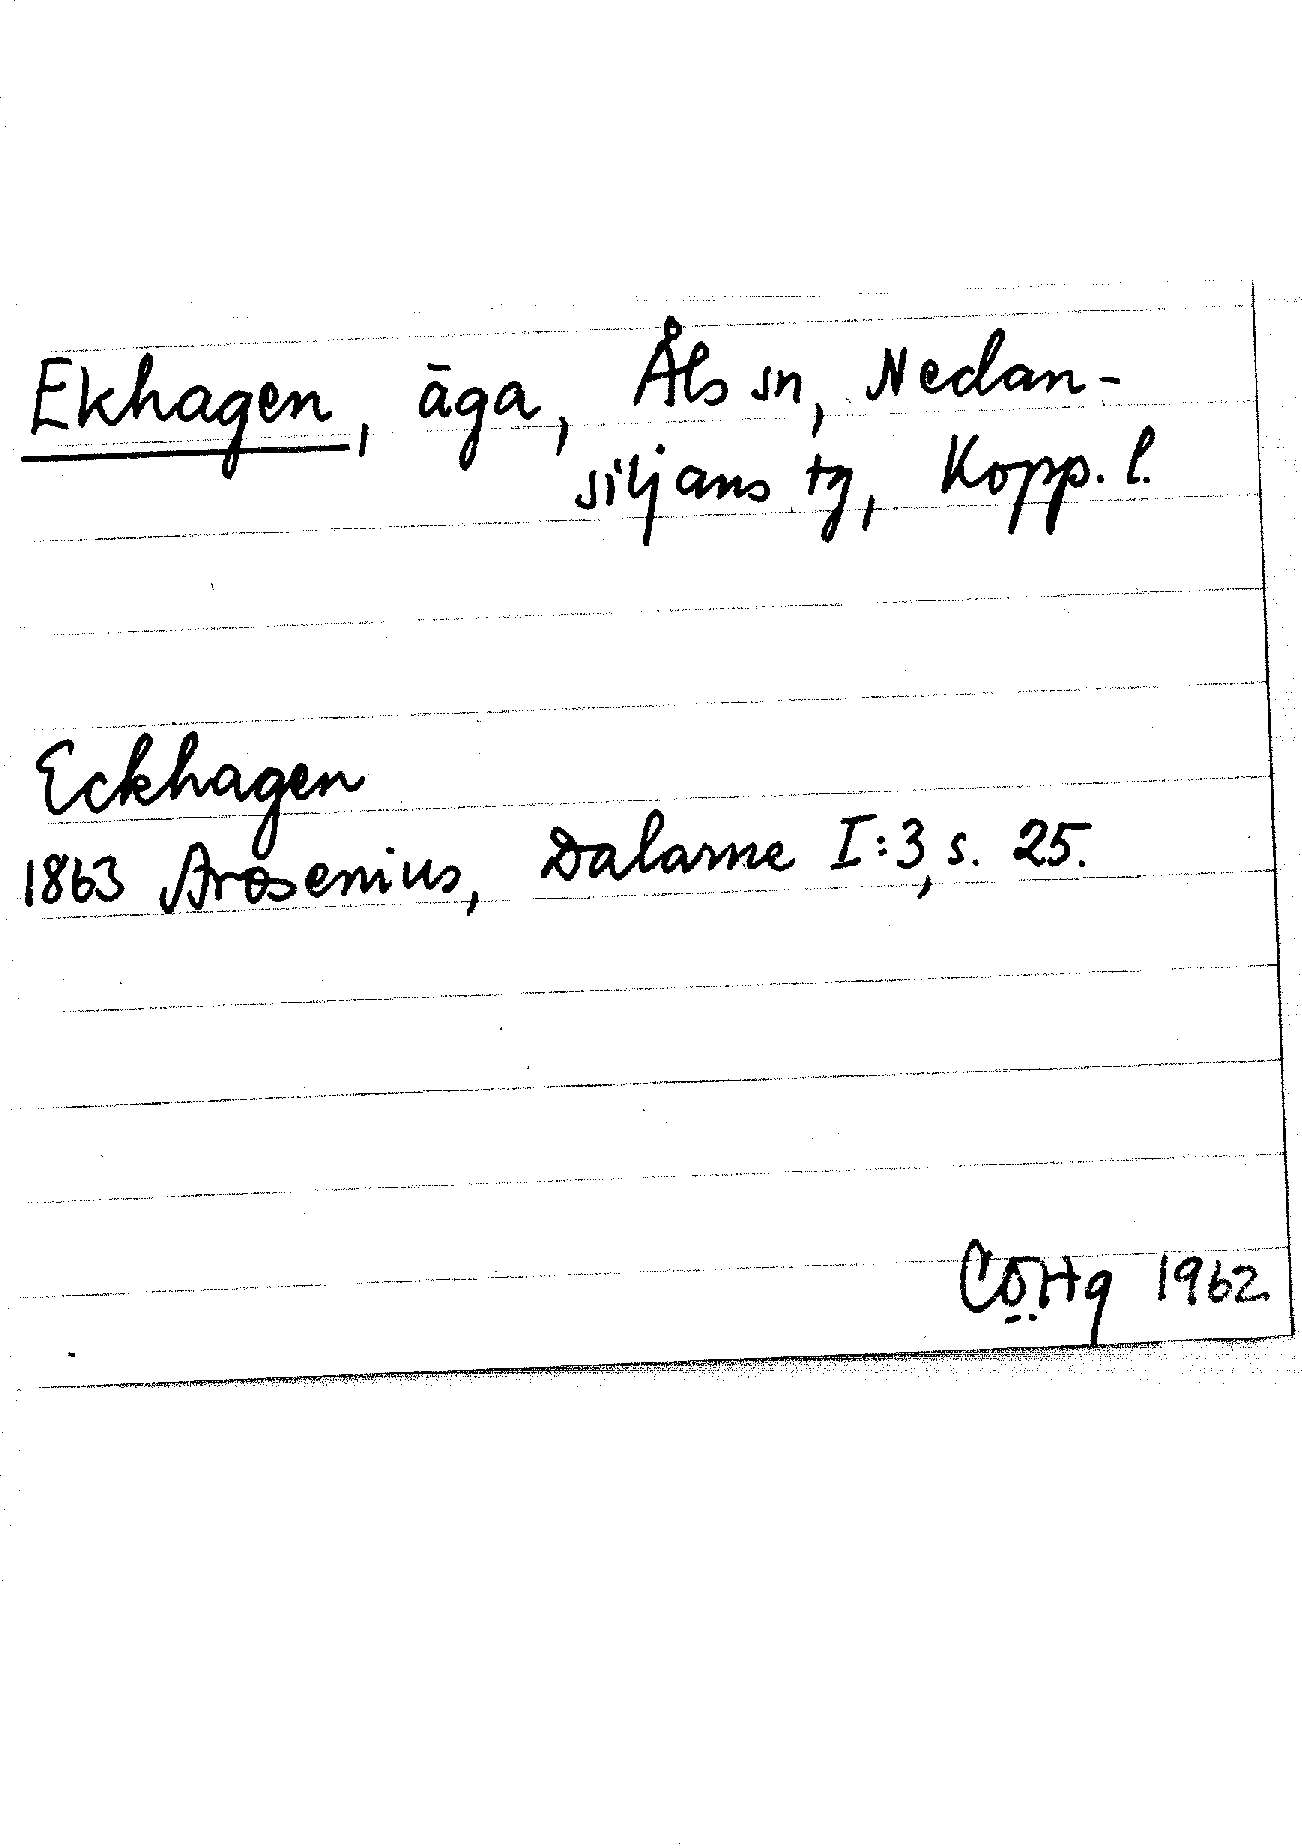 Ekhagen, äga, Åls sn, Nedan-
siljans tg, Kopp. l.
Eckhagen
1863 Arosenius, Dalarne I:3, s. 25.
CÖHg 1962